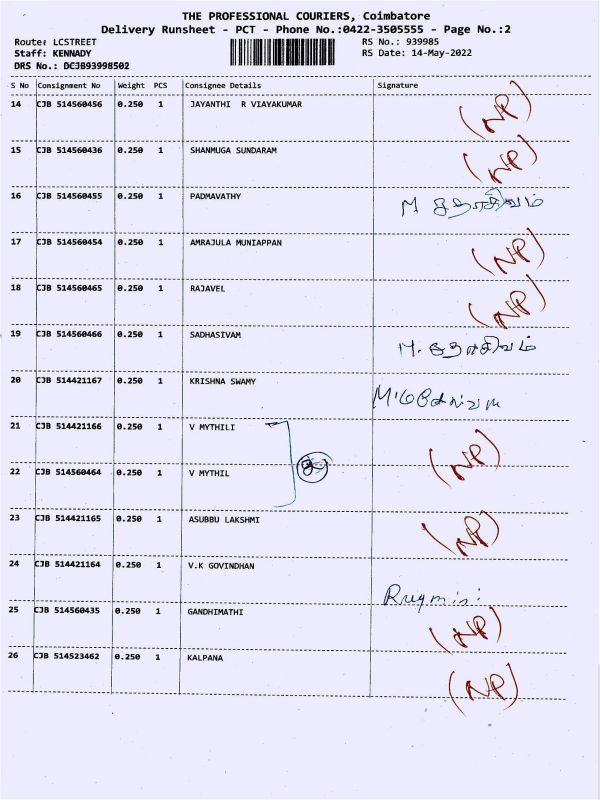 THE PROFESSIONAL COURIERS, Coimbatore
Delivery Runsheet - PCT - Phone No.:0422-3505555 - Page No.:2
Route: LCSTREET RS No.: 939985
Staff: KENNADY RS Date: 14-May-2022
DRS No.: DCJB93998502
S No Consignment No Weight PCS Consignee Details Signature
14 CJB 514560456 0.250 1 JAYANTHI R VIAYAKUMAR (NP)
15 CJB 514560436 0.250 1 SHANMUGA SUNDARAM (NP)
16 CJB 514560455 0.250 1 PADMAVATHY M சதாசிவம்
17 CJB 514560454 0.250 1 AMRAJULA MUNIAPPAN (NP)
18 CJB 514560465 0.250 1 RAJAVEL (NP)
19 CJB 514560466 0.250 1 SADHASIVAM M. சதாசிவம்
20 CJB 514421167 0.250 1 KRISHNA SWAMY
21 CJB 514421166 0.250 1 V MYTHILI (NP)
22 CJB 514560464 0.250 1 V MYTHIL
23 CJB 514421165 0.250 1 ASUBBU LAKSHMI (NP)
24 CJB 514421164 0.250 1 V.K GOVINDHAN
25 CJB 514560435 0.250 1 GANDHIMATHI (NP)
26 CJB 514523462 0.250 1 KALPANA (NP)